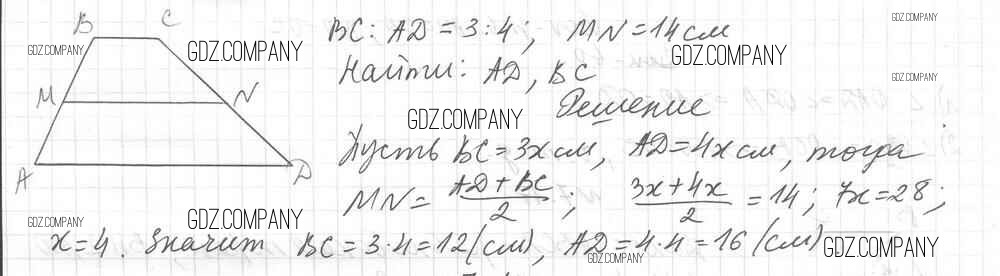 B C BC : AD = 3 : 4 ; MN = 14 см
GDZ.COMPANY
GDZ.COMPANY GDZ.COMPANY GDZ.COMPANY
Найти: AD, BC
GDZ.COMPANY
M N Решение
GDZ.COMPANY
Пусть BC = 3x см, AD = 4x см, тогда
A D MN = (AD + BC)/2 ; (3x + 4x)/2 = 14 ; 7x = 28 ;
GDZ.COMPANY GDZ.COMPANY
x = 4. Значит BC = 3·4 = 12 (см), AD = 4·4 = 16 (см)
GDZ.COMPANY GDZ.COMPANY